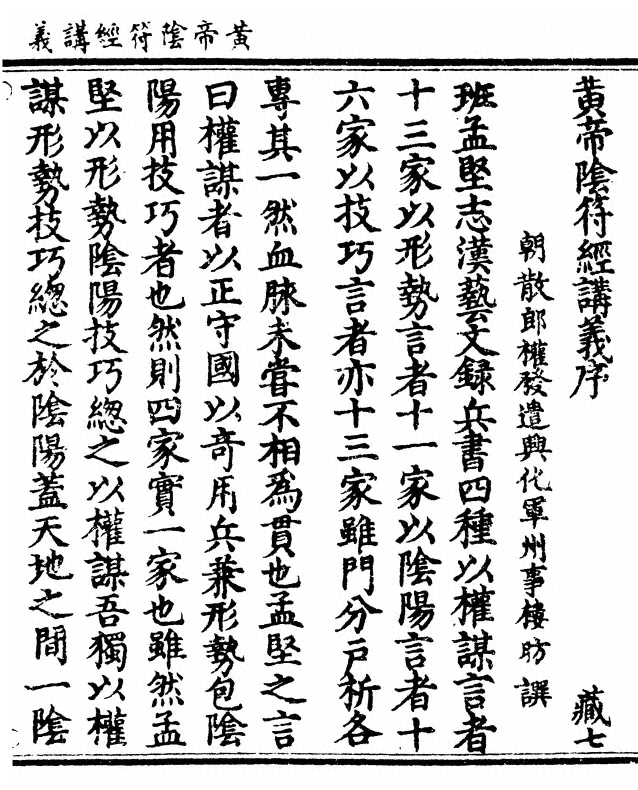 黄帝陰符經講義
黄帝陰符經講義序
藏七
朝散郎權發遣興化軍州事樓昉譔
班孟堅志漢藝文録兵書四種以權謀言者
十三家以形勢言者十一家以陰陽言者十
六家以技巧言者亦十三家雖門分戸析各
專其一然血脉未嘗不相爲貫也孟堅之言
曰權謀者以正守國以奇用兵兼形勢包陰
陽用技巧者也然則四家實一家也雖然孟
堅以形勢陰陽技巧緫之以權謀吾獨以權
謀形勢技巧緫之於陰陽蓋天地之間一陰